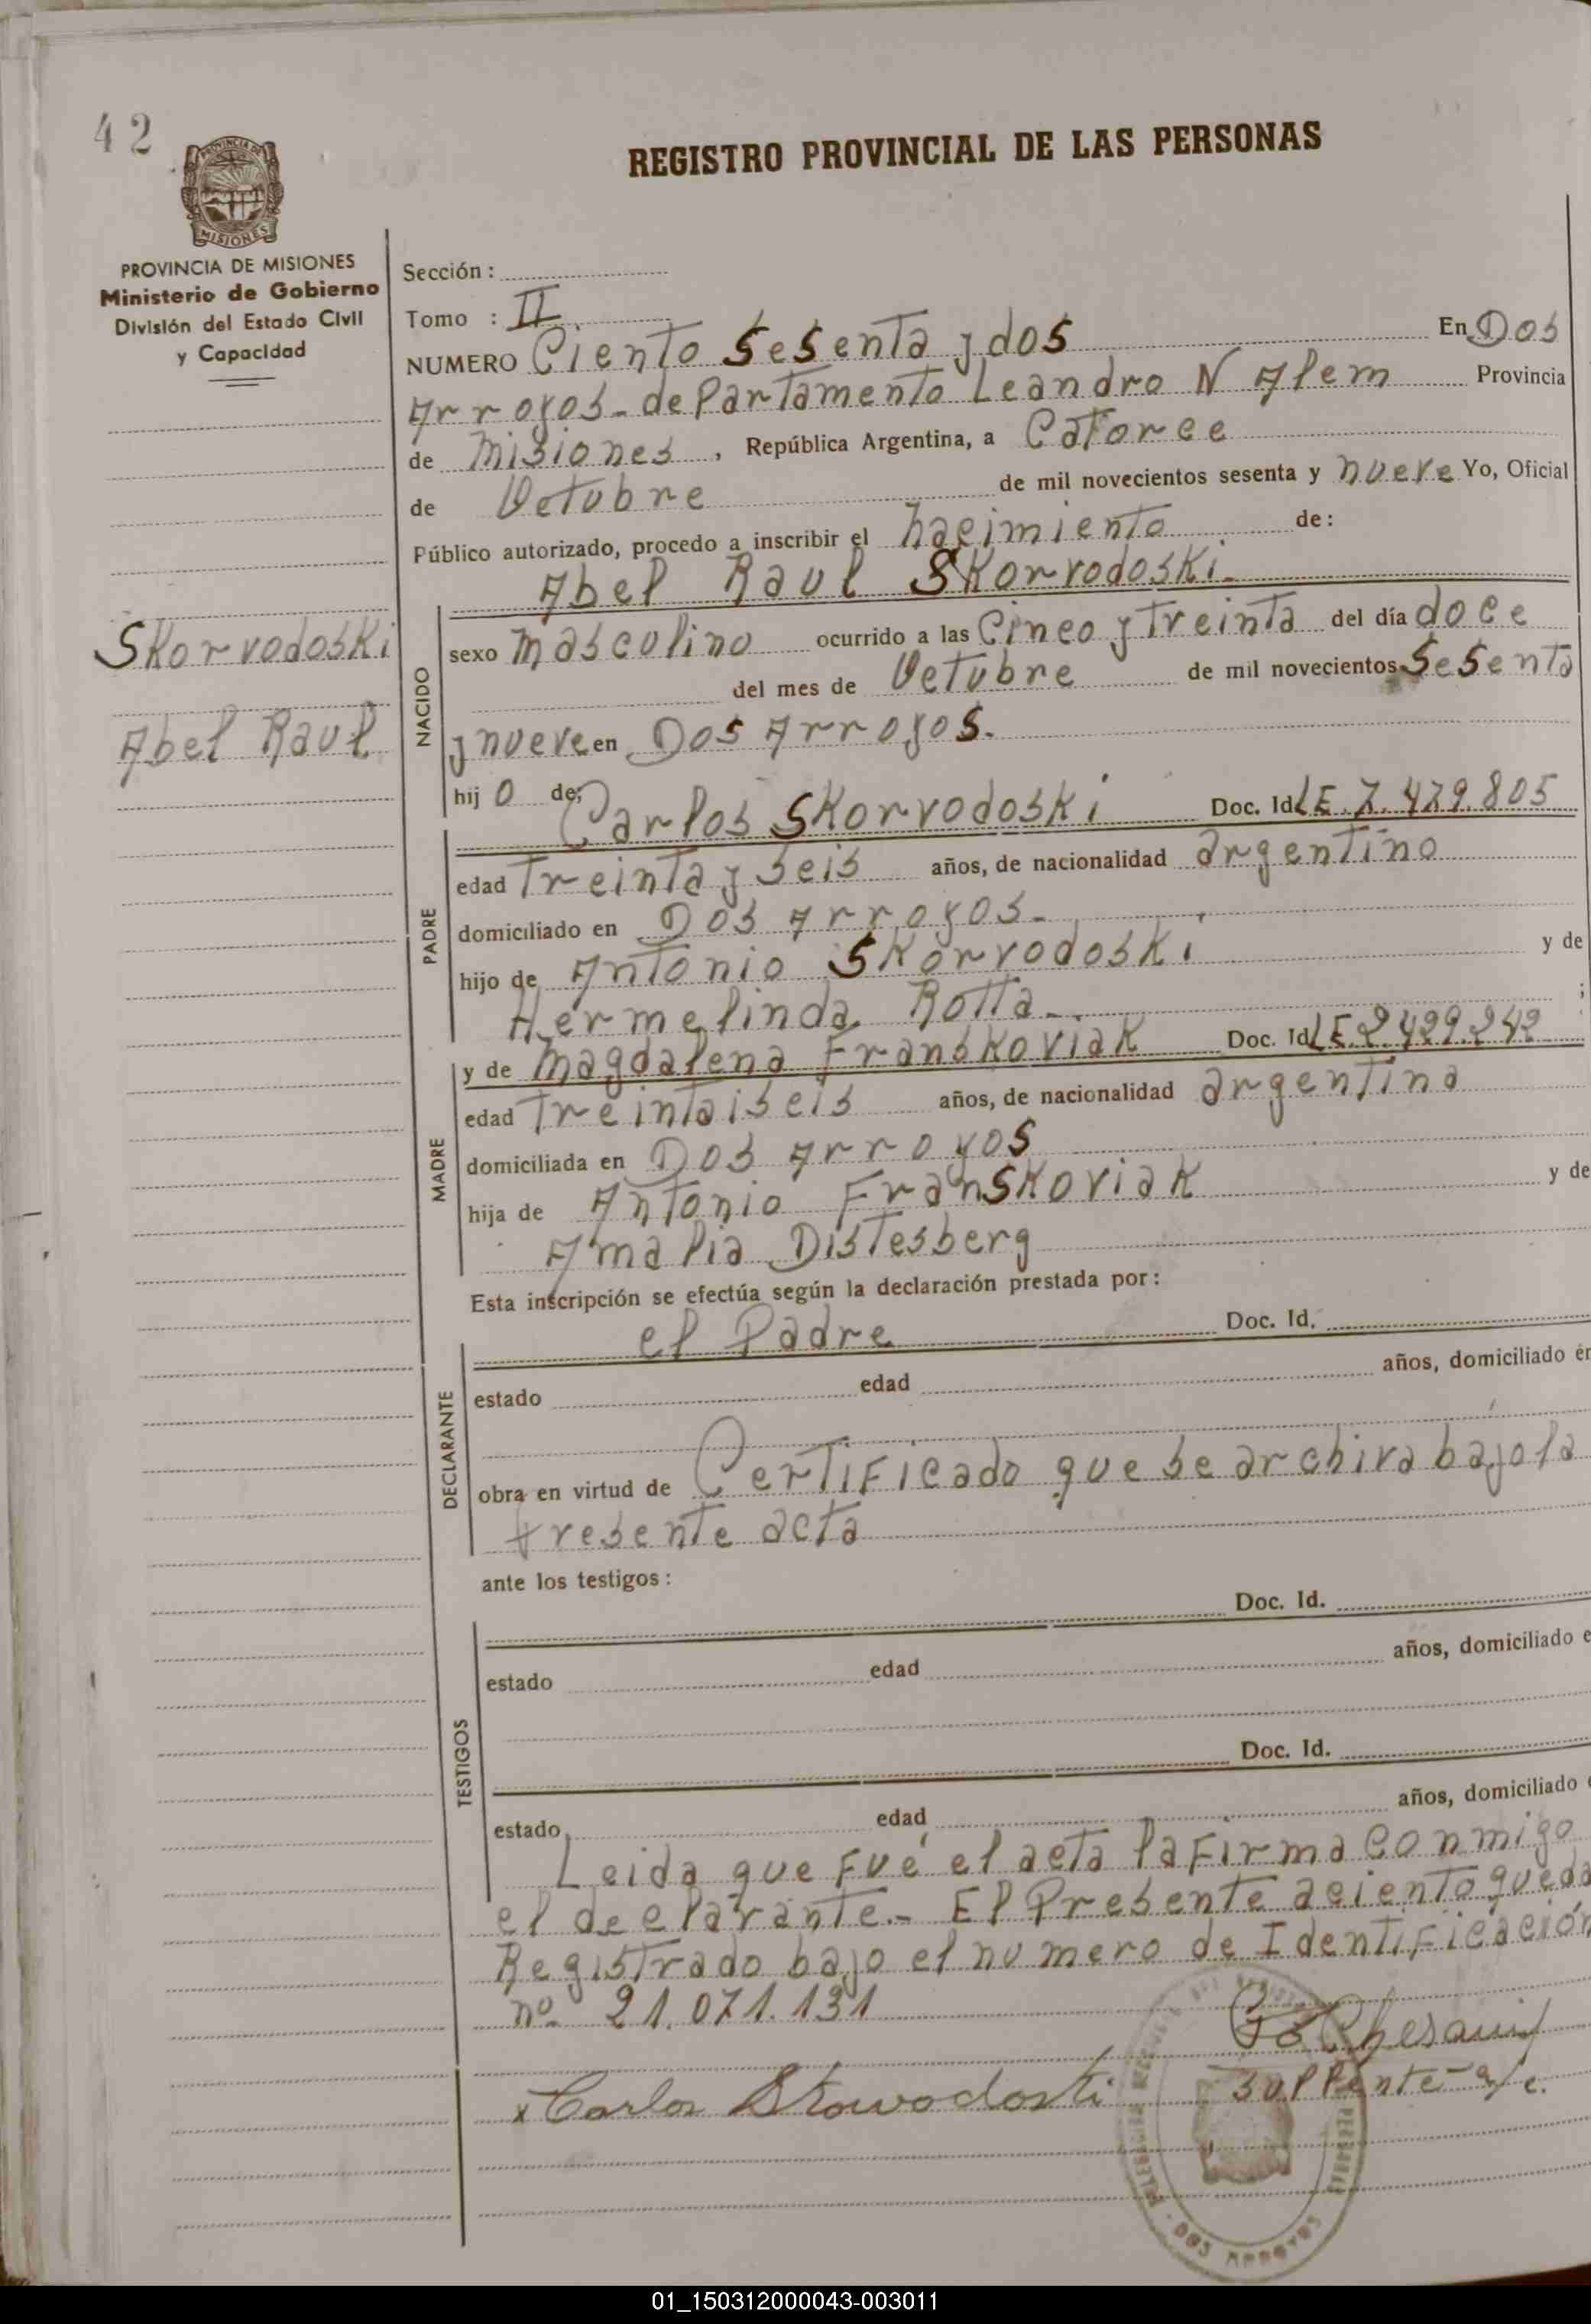 42
REGISTRO PROVINCIAL DE LAS PERSONAS
PROVINCIA DE MISIONES
MISIONES
PROVINCIA DE MISIONES
Ministerio de Gobierno
División del Estado Civil
y Capacidad
Skorvodoski
Abel Raul
Sección :
Tomo : II
NUMERO Ciento Sesenta y dos En Dos
Arroyos - departamento Leandro N Alem Provincia
de Misiones, República Argentina, a Catorce
de Octubre de mil novecientos sesenta y nueve Yo, Oficial
Público autorizado, procedo a inscribir el nacimiento de:
Abel Raul Skorvodoski.
NACIDO
sexo masculino ocurrido a las Cinco y Treinta del día doce
del mes de Octubre de mil novecientos Sesenta
y nueve en Dos Arroyos.
hij o de: Carlos Skorvodoski Doc. Id. LE. 7.429.805
PADRE
edad Treinta y seis años, de nacionalidad argentino
domiciliado en Dos Arroyos.
hijo de Antonio Skorvodoski y de
Hermelinda Rotta. ;
MADRE
y de Magdalena Franskoviak Doc. Id. LE. 2.429.242
edad Treintaiseis años, de nacionalidad argentina
domiciliada en Dos Arroyos
hija de Antonio Franskoviak y de
Amalia Distesberg
Esta inscripción se efectúa según la declaración prestada por:
el Padre Doc. Id.
DECLARANTE
estado edad años, domiciliado en
obra en virtud de Certificado que se archiva bajo la
presente acta
ante los testigos:
Doc. Id.
TESTIGOS
estado edad años, domiciliado e
Doc. Id.
estado edad años, domiciliado
Leida que fué el acta la firma conmigo
el declarante.- El Presente aciento queda
Registrado bajo el numero de Identificación
nº 21.071.131
x Carlos Skorvodoski
Suplente a/c.
DOS ARROYOS
01_150312000043-003011